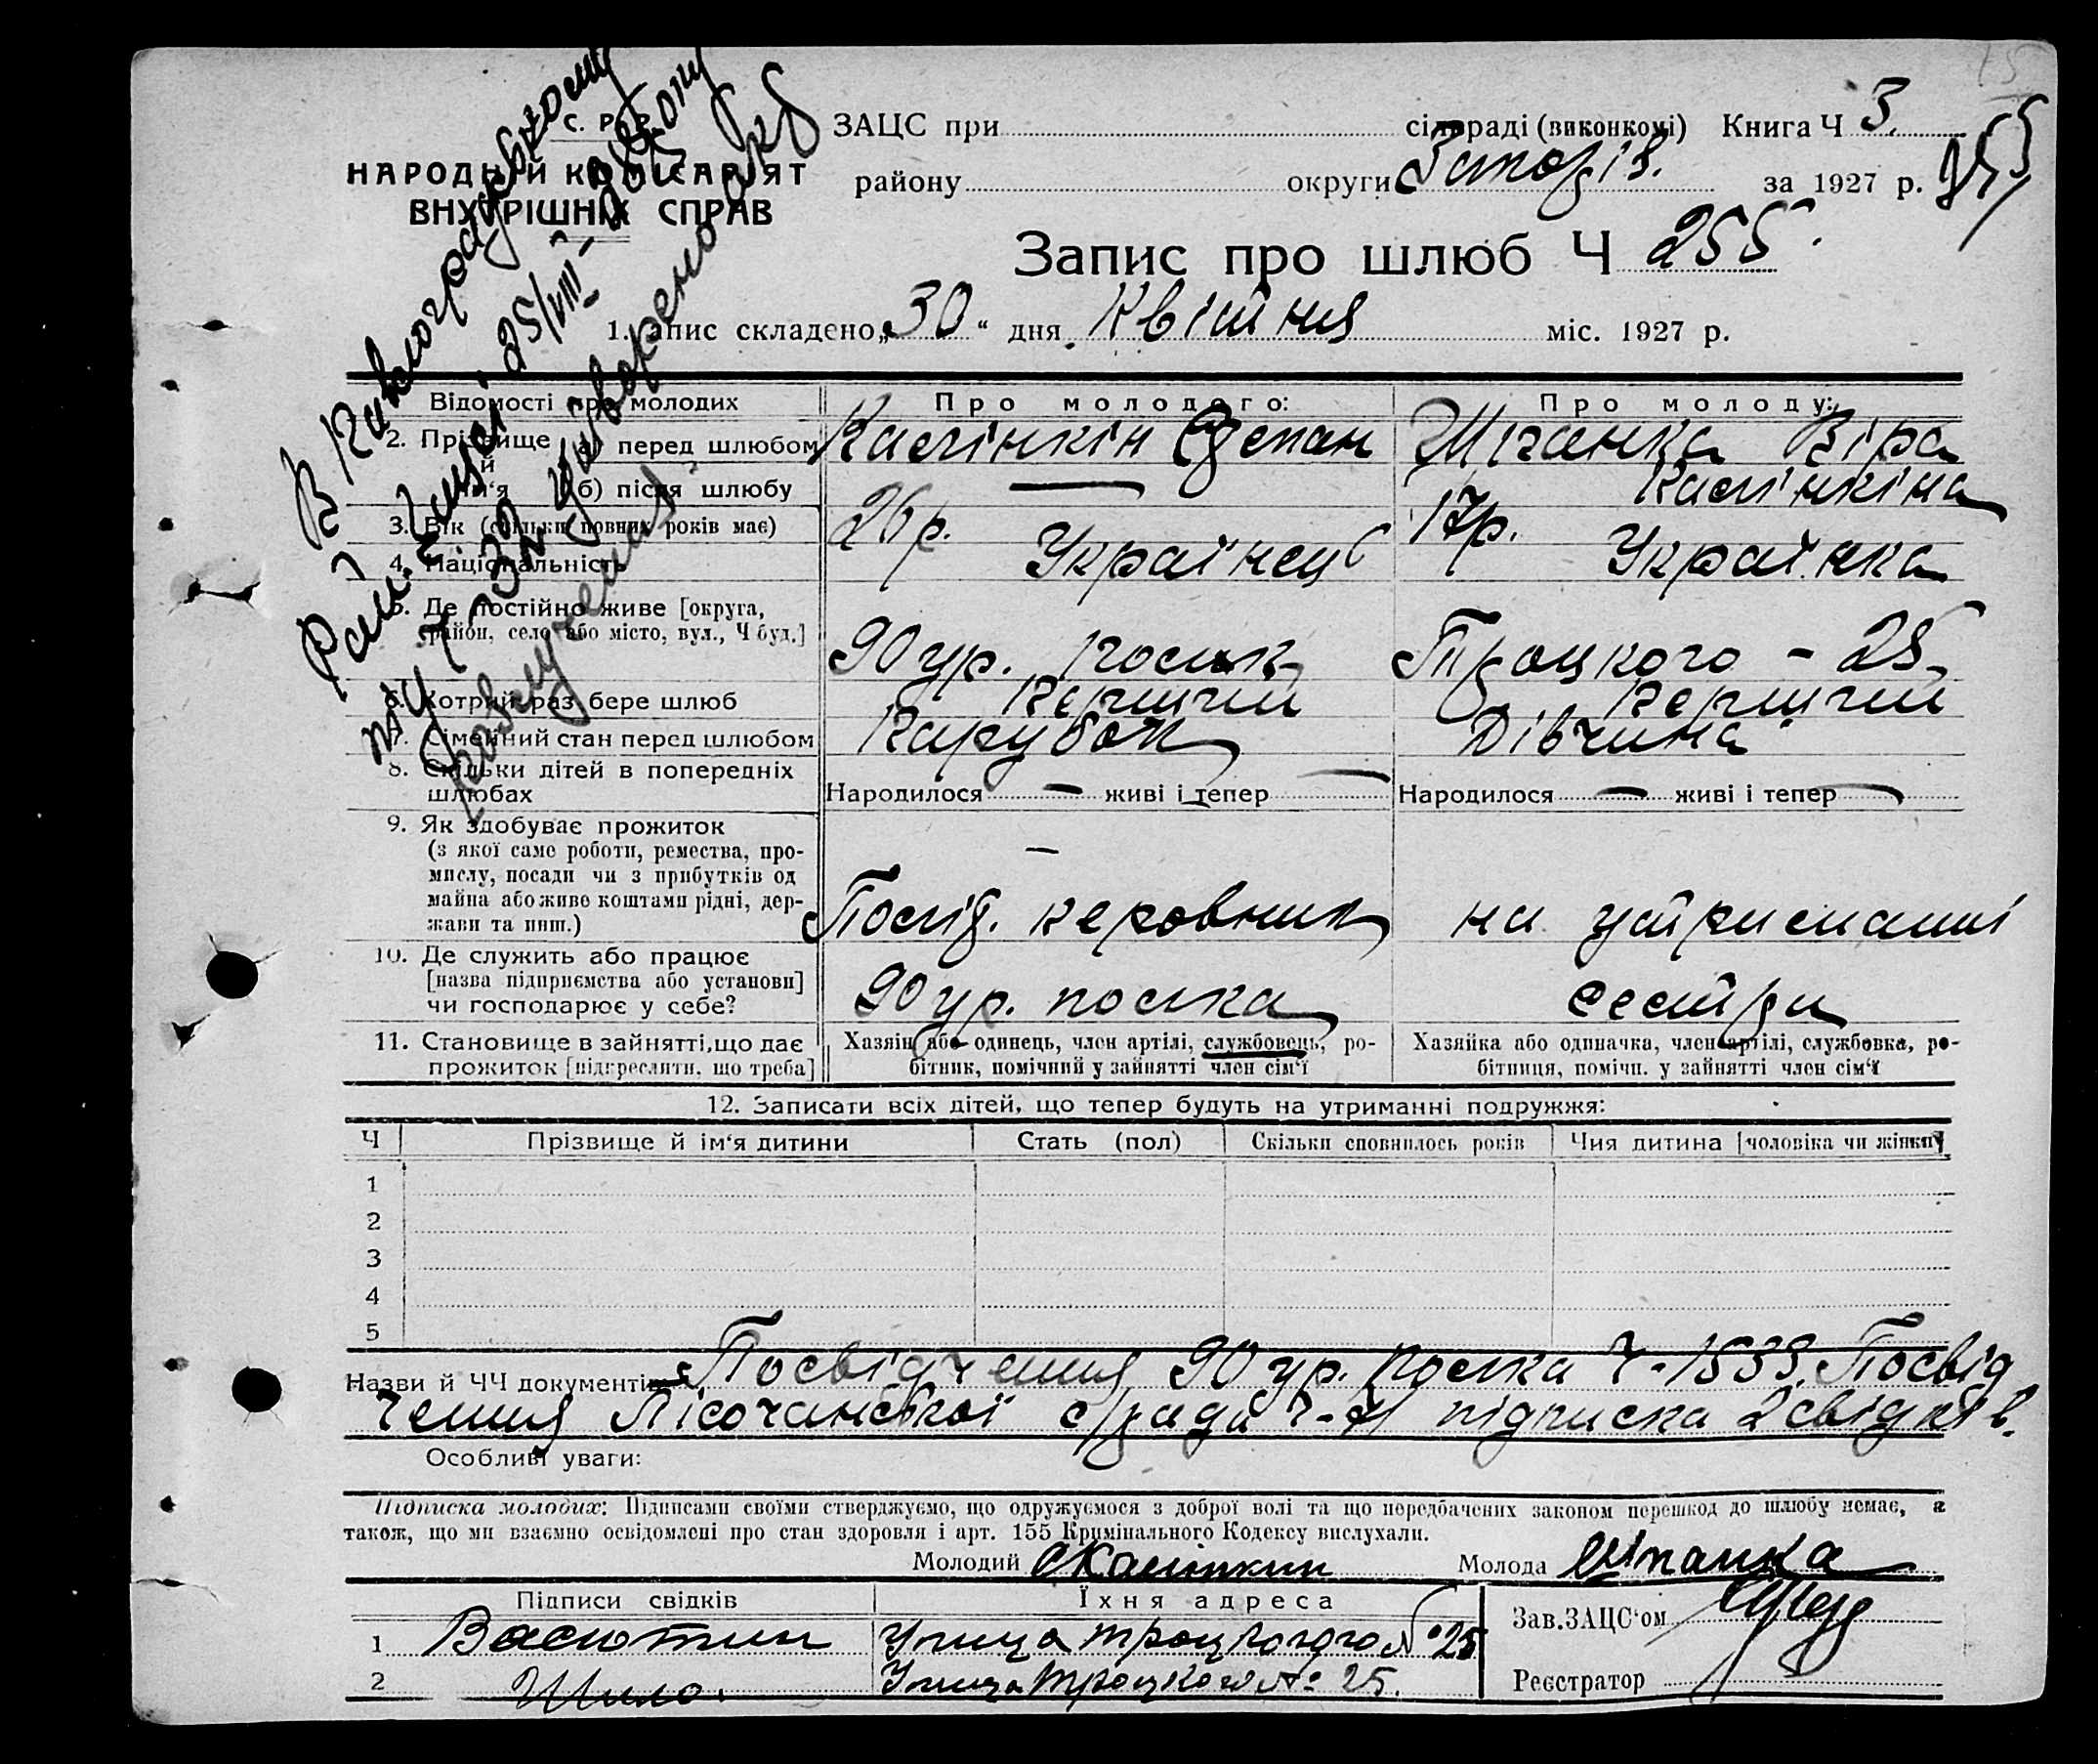 С. Р Р
НАРОДНІЙ КОМІСАРІЯТ
ВНУТРІШНІХ СПРАВ
ЗАЦС при сільраді (виконкомі) Книга Ч 3.
району округи Запоріз. за 1927 р. 255
Запис про шлюб Ч 255.
1. Запис складено „30“ дня Квітня міс. 1927 р.
Відомості про молодих
Про молодого:
Про молоду:
2. Прізвище й ім'я а) перед шлюбом
Калінкін Степан
Віра
б) після шлюбу
—
Калінкіна
3. Вік (скільки повних років має)
26 р.
17 р.
4. Національність
Українець
Українка
5. Де постійно живе [округа,
район, село або місто, вул., Ч буд.]
90 ур. полк
Троцкого - 25
6. Котрий раз бере шлюб
Перший
Перший
7. Сімейний стан перед шлюбом
Парубок
Дівчина
8. Скільки дітей в попередніх
шлюбах
Народилося — живі і тепер —
Народилося — живі і тепер —
9. Як здобуває прожиток
(з якої саме роботи, ремества, про-
мислу, посади чи з прибутків од
майна або живе коштами рідні, дер-
жави та інш.)
—
Політ. керовник
на утриманні
10. Де служить або працює
[назва підприємства або установи]
чи господарює у себе?
90 ур. полка
сестри
11. Становище в зайнятті, що дає
прожиток [підкреслити, що треба]
Хазяін або одинець, член артілі, службовець, ро-
бітник, помічний у зайнятті член сім'ї
Хазяйка або одиначка, член артілі, службовка, ро-
бітниця, помічн. у зайнятті член сім'ї
12. Записати всіх дітей, що тепер будуть на утриманні подружжя:
Ч Прізвище й ім'я дитини Стать (пол) Скільки сповнилось років Чия дитина [чоловіка чи жінки]
1
2
3
4
5
Назви й ЧЧ документів Посвідчення 90 ур. полка Ч-1533. Посвід
чення Лісочанської с/ради Ч-71 підписка 2 свідків.
Особливі уваги:
Підписка молодих: Підписами своїми стверджуємо, що одружуємося з доброї волі та що передбачених законом перешкод до шлюбу немає, а
також, що ми взаємно освідомлені про стан здоровля і арт. 155 Кримінального Кодексу вислухали.
Молодий С Калінкин Молода
Підписи свідків
Їхня адреса
1 Васютин Улица Троцкого №25
2 Шило. Улица Троцкого № 25.
Зав. ЗАЦС'ом
Реєстратор
В Павлоградському